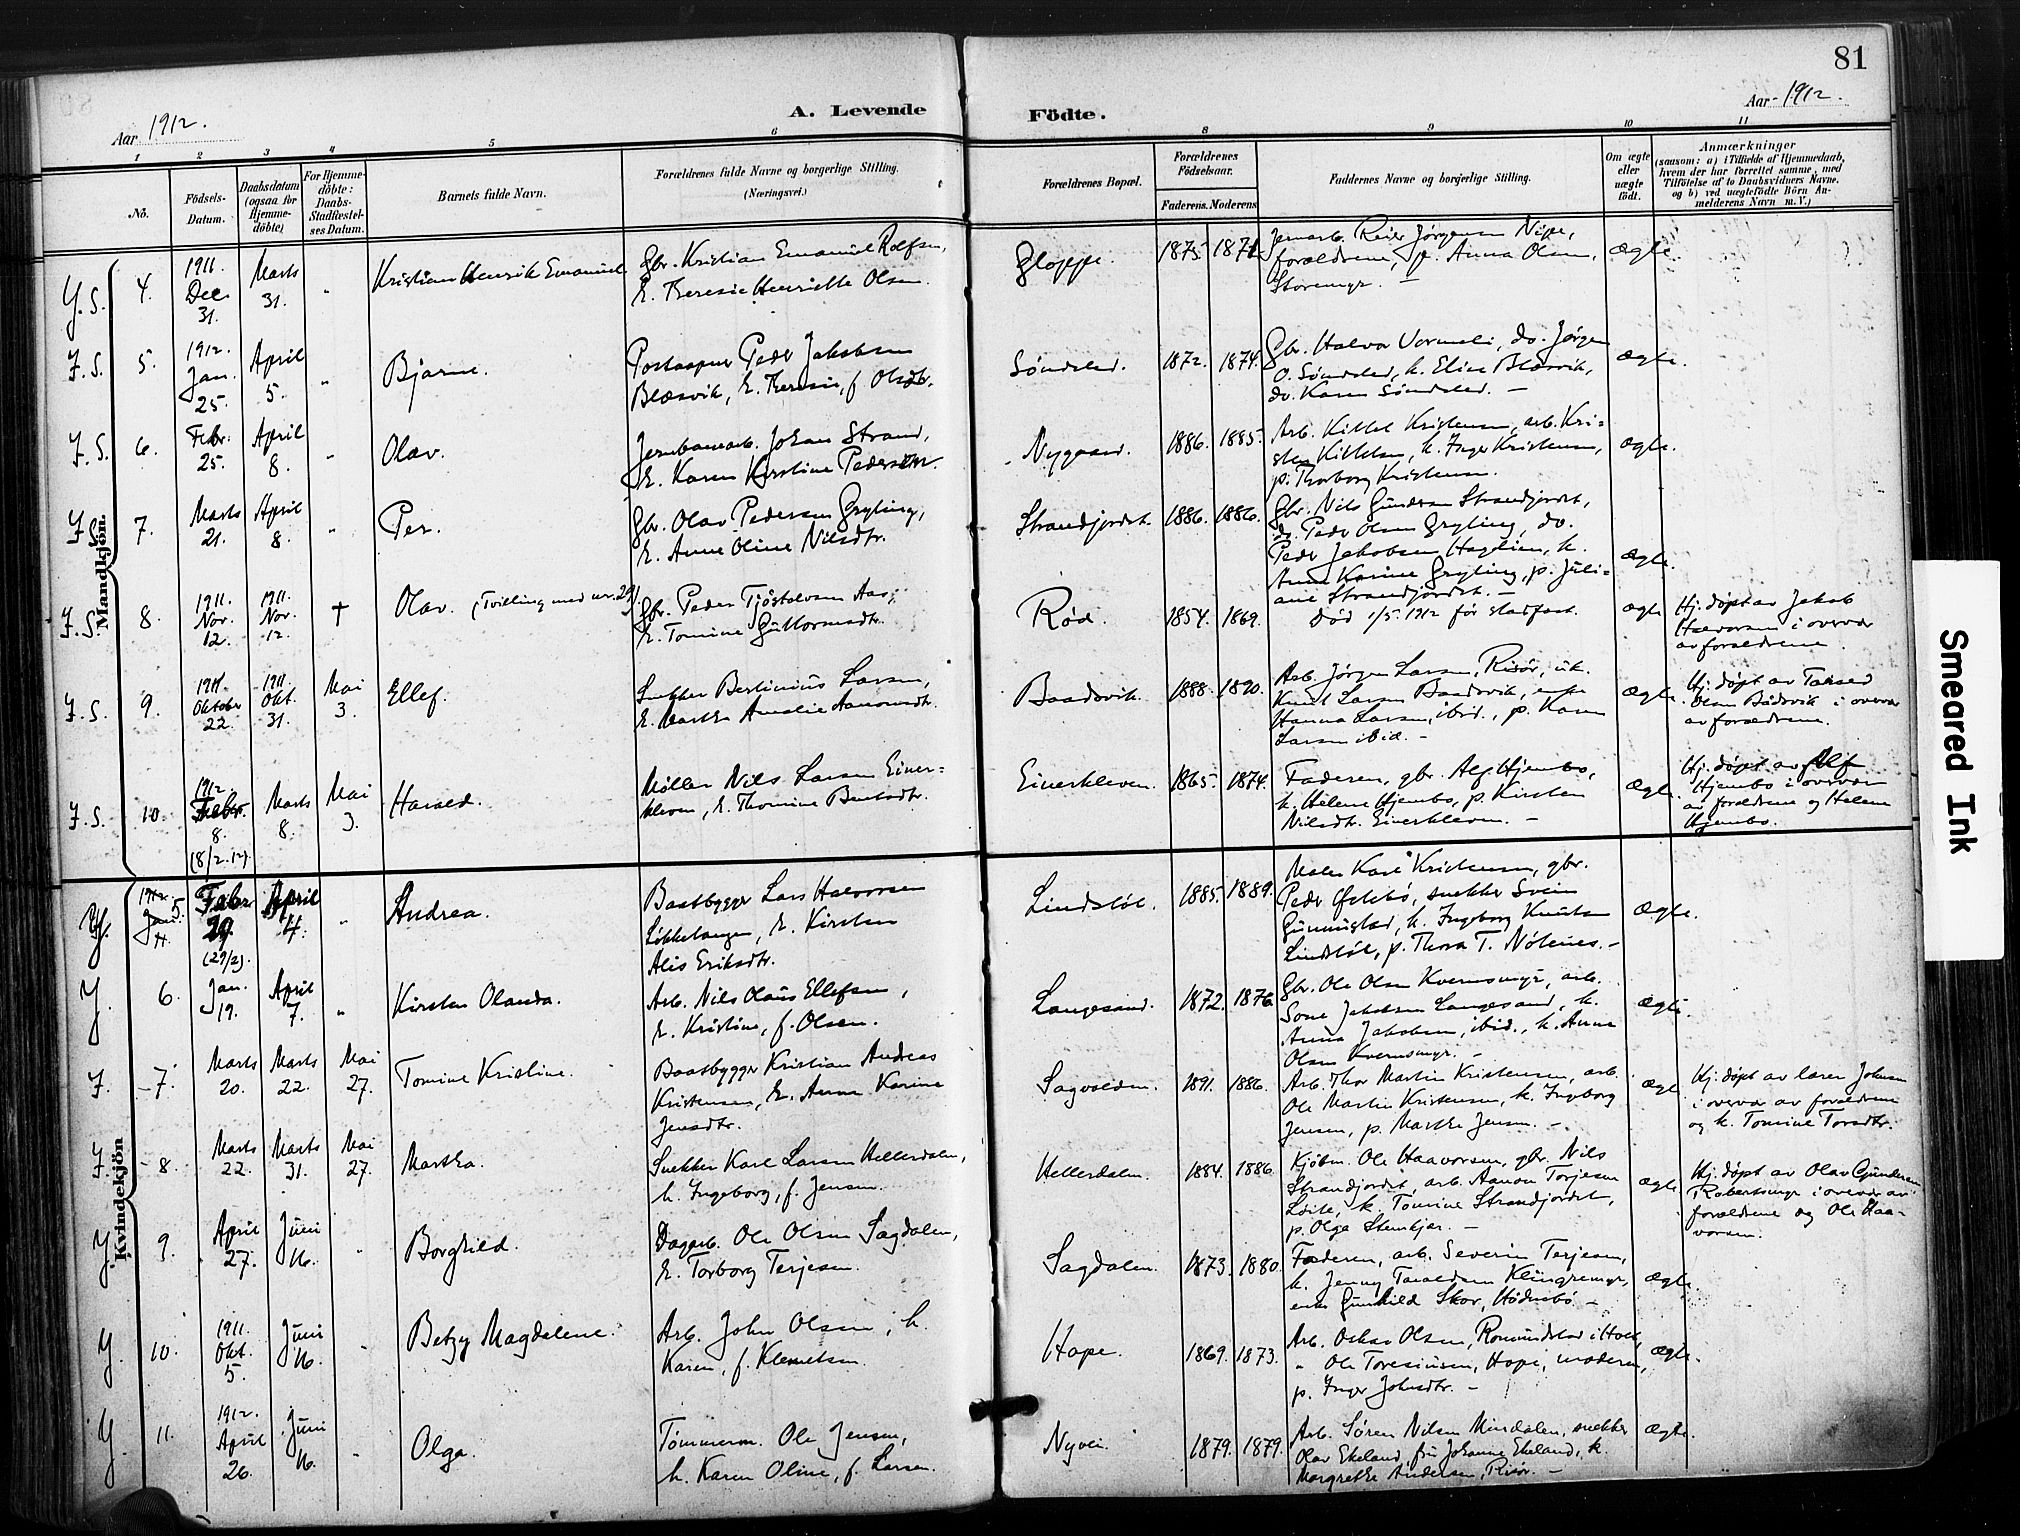 81
Aar 1912.
A. Levende
Födte.
Aar 1912.
1 2 3 4 5 6 8 9 10 11
No.
Födsels-
Datum.
Daabsdatum
(ogsaa for
Hjemme-
döbte)
For Hjemme-
döbte:
Daabs-
Stadfæstel-
ses Datum.
Barnets fulde Navn.
Forældrenes fulde Navne og borgerlige Stilling.
(Næringsvei.)
Forældrenes Bopæl.
Forældrenes
Födselsaar.
Faderens. Moderens
Faddernes Navne og borgerlige Stilling.
Om ægte
eller
uægte
født.
Anmærkninger
(saasom: a) i Tilfælde af Hjemmedaab,
hvem der har forrettet samme, med
Tilföielse af to Daabsvidners Navne.
og b) ved uægtefödte Börn An-
melderens Navn m. V.)
Mandkjön.
Y. S. 4. 1911. Dec. 31. Marts 31. "
Kristian Henrik Emanuel
Gbr. Kristian Emanuel Rolfsen,
E. Theresie Henriette Olsen.
Gloppe. 1875. 1871
Jernarb. Reier Jørgensen Nipe,
forældrene, p. Anna Olsen,
Storemyr. —
ægte.
F. S. 5. 1912. Jan. 25. April 5. "
Bjarne.
Postaapner Peder Jakobsen
Blæsvik, E. Theresie, f. Olsdtr.
Søndeled. 1872. 1874.
Gbr. Halvor Vormeli, do. Jørgen
O. Søndeled, k. Elise Blæsvik,
do. Karen Søndeled. —
ægte.
F. S. 6. Febr. 25. April 8. "
Olav.
Jernbanearb. Johan Strand,
E. Karen Kirstine Pedersen.
Nygaard. 1886. 1885.
Arb. Kittel Kristensen, arb. Kri-
sten Kittelsen, k. Inger Kristensen,
p. Thorborg Kristensen.
ægte.
F. S. 7. Marts 21. April 8. "
Per.
Gbr. Olav Pedersen Gryting,
E. Anne Oline Nilsdtr.
Strandjordet. 1886. 1886.
Gbr. Nils Gundersen Strandjordet,
do. Peder Olsen Gryting, do.
Peder Jakobsen Hagelien, k.
Anne Karine Gryting, p. Juli-
ane Strandjordet. —
ægte.
F. S. 8. 1911. Nov. 12. 1911. Nov. 12. †
Olav. (Tvilling med nr. 29)
Gbr. Peder Tjøstolvsen Aas,
E. Tomine Guttormsdtr.
Rød. 1854. 1869.
Død 1/5 1912 før stadfæst.
ægte
Hj. døpt av Jakob
Halvorsen i overvær
av forældrene.
F. S. 9. 1911. Oktober 22. 1911. Okt. 31. Mai 3.
Ellef.
Snekker Bertinius Larsen,
E. Marthe Amalie Aanonsdtr.
Baadsvik. 1888. 1890.
Arb. Jørgen Larsen, Risør, uk.
Knut Larsen Baadsvik, enke
Hanna Larsen, ibid., p. Karen
Larsen ibid. —
ægte.
Hj. døpt av Tarald
Olsen Bådsvik i overvær
av forældrene.
F. S. 10. 1912. Febr. 8. (8/2.12). Marts 8. Mai 3.
Harald.
Møller Nils Larsen Einer-
kleven, E. Thomine Bentsdtr.
Einerkleven. 1865. 1874.
Faderen, gbr. Alf Hjembo,
k. Helene Hjembo, p. Kirsten
Nilsdtr. Einerkleven. —
ægte.
Hj. døpt av Alf
Hjembo i overvær
av forældrene og Helene
Hjembo.
Kvindekjön
Y. 5. Febr. 29. (29/2). April 4. "
Andrea.
Baatbygger Lars Halvorsen
Løkketangen, E. Kirsten
Alis Eriksdtr.
Lindstøl. 1885. 1889.
Maler Karl Kristensen, gbr.
Peder Østebø, snekker Svein
Gunnustad, k. Ingeborg Knutsen
Lindstøl, p. Thora T. Nøtenes. —
ægte.
Y. 6. Jan. 19. April 7. "
Kirsten Olanda.
Arb. Nils Olaus Ellefsen,
E. Kristine, f. Olsen.
Langesand. 1872. 1876
Gbr. Ole Olsen Kvernsmyr, arb.
Sone Jakobsen Langesand, k.
Anna Jakobsen, ibid., k. Anne
Olsen Kvernsmyr. —
ægte.
F. 7. Marts 20. Marts 22. Mai 27.
Tomine Kristine.
Baatbygger Kristian Andreas
Kristensen, E. Anne Karine
Jensdtr.
Sagvolden. 1891. 1886.
Arb. Thor Martin Kristensen, arb.
Ole Martin Kristensen, k. Ingeborg
Jensen, p. Marthe Jensen. —
ægte
Hj. døpt av lærer Johnsen
i overvær av forældrene
og k. Tomine Torsdtr.
F. 8. Marts 22. Marts 31. Mai 27.
Martha.
Snekker Karl Larsen Hellerdalen,
k. Ingeborg, f. Jensen.
Hellerdalen. 1884. 1886.
Kjøbm. Ole Haavorsen, gbr. Nils
Strandjordet, arb. Aanon Torjesen
Løite, k. Tomine Strandjordet,
p. Olga Stenkjær. —
ægte
Hj. døpt av Olav Gundersen
Robertsmyr i overvær av
forældrene og Ole Haa-
vorsen.
Y. 9. April 27. Juni 16. "
Borghild.
Dagarb. Ole Olsen Sagdalen,
E. Torborg Terjesen.
Sagdalen. 1873. 1880.
Faderen, arb. Severin Terjesen,
k. Jenny Taraldsen Klingremyr,
enke Gunhild Skor, Hødnebø —
ægte.
Y. 10. 1911. Okt. 5. Juni 16. "
Betzy Magdalene.
Arb. John Olsen, k.
Karen, f. Klemetsen.
Hope. 1869. 1873.
Arb. Oskar Olsen, Romundstad i Holt,
" Ole Toresiusen, Hope, moderen,
p. Inger Johnsdtr. —
ægte.
Y. 11. 1912. April 26. Juni 16. "
Olga.
Tømmerm. Ole Jensen,
k. Karen Oline, f. Larsen.
Nyvei. 1879. 1879.
Arb. Søren Nilsen Mindalen, snekker
Olav Ekeland, fru Johanne Ekeland, k.
Margrethe Andersen, Risør. —
ægte.
Smeared Ink